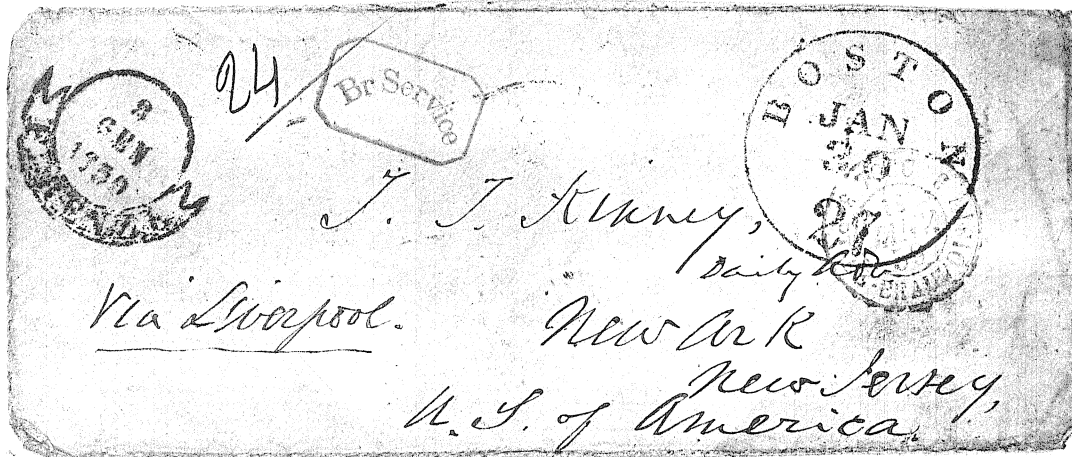 3
GEN
1850
24/
Br Service
BOSTON
JAN
30
27
T. T. Kinney,
Daily Adv
Via Liverpool.
New Ark
New Jersey,
U. S. of America.